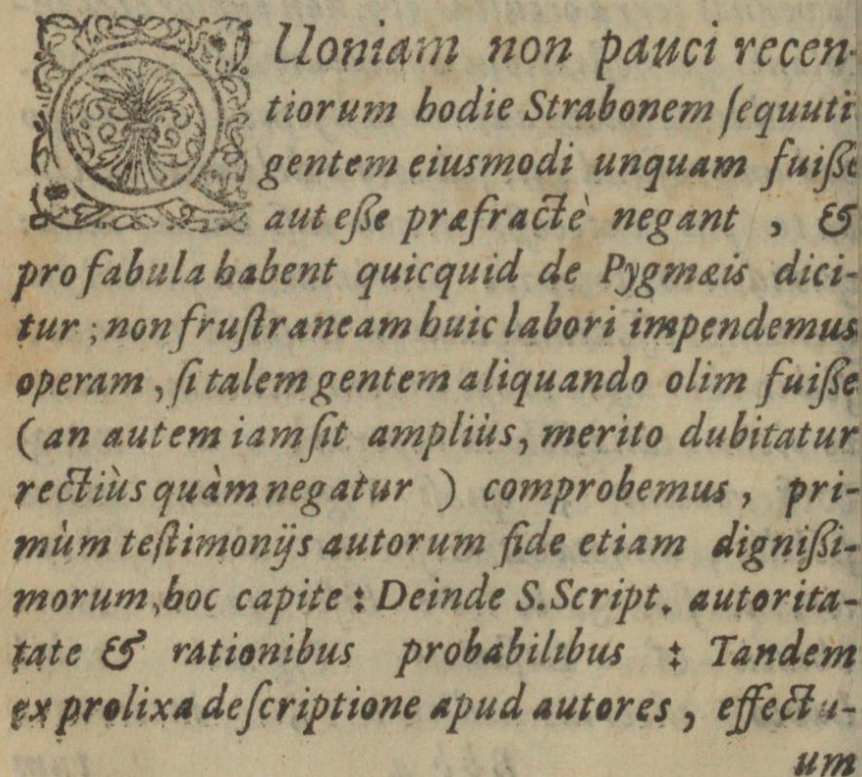 QUoniam non pauci recen-
tiorum hodie Strabonem ſequuti
gentem eiusmodi unquam fuiſſe
aut eſſe præfractè negant, &
pro fabula habent quicquid de Pygmæis dici-
tur; non fruſtraneam huic labori impendemus
operam, ſi talem gentem aliquando olim fuiſſe
(an autem iam ſit ampliùs, merito dubitatur
rectiùs quàm negatur) comprobemus, pri-
mùm teſtimonijs autorum fide etiam digniſſi-
morum, hoc capite: Deinde S. Script. autorita-
tate & rationibus probabilibus: Tandem
ex prolixa deſcriptione apud autores, effectu-
um